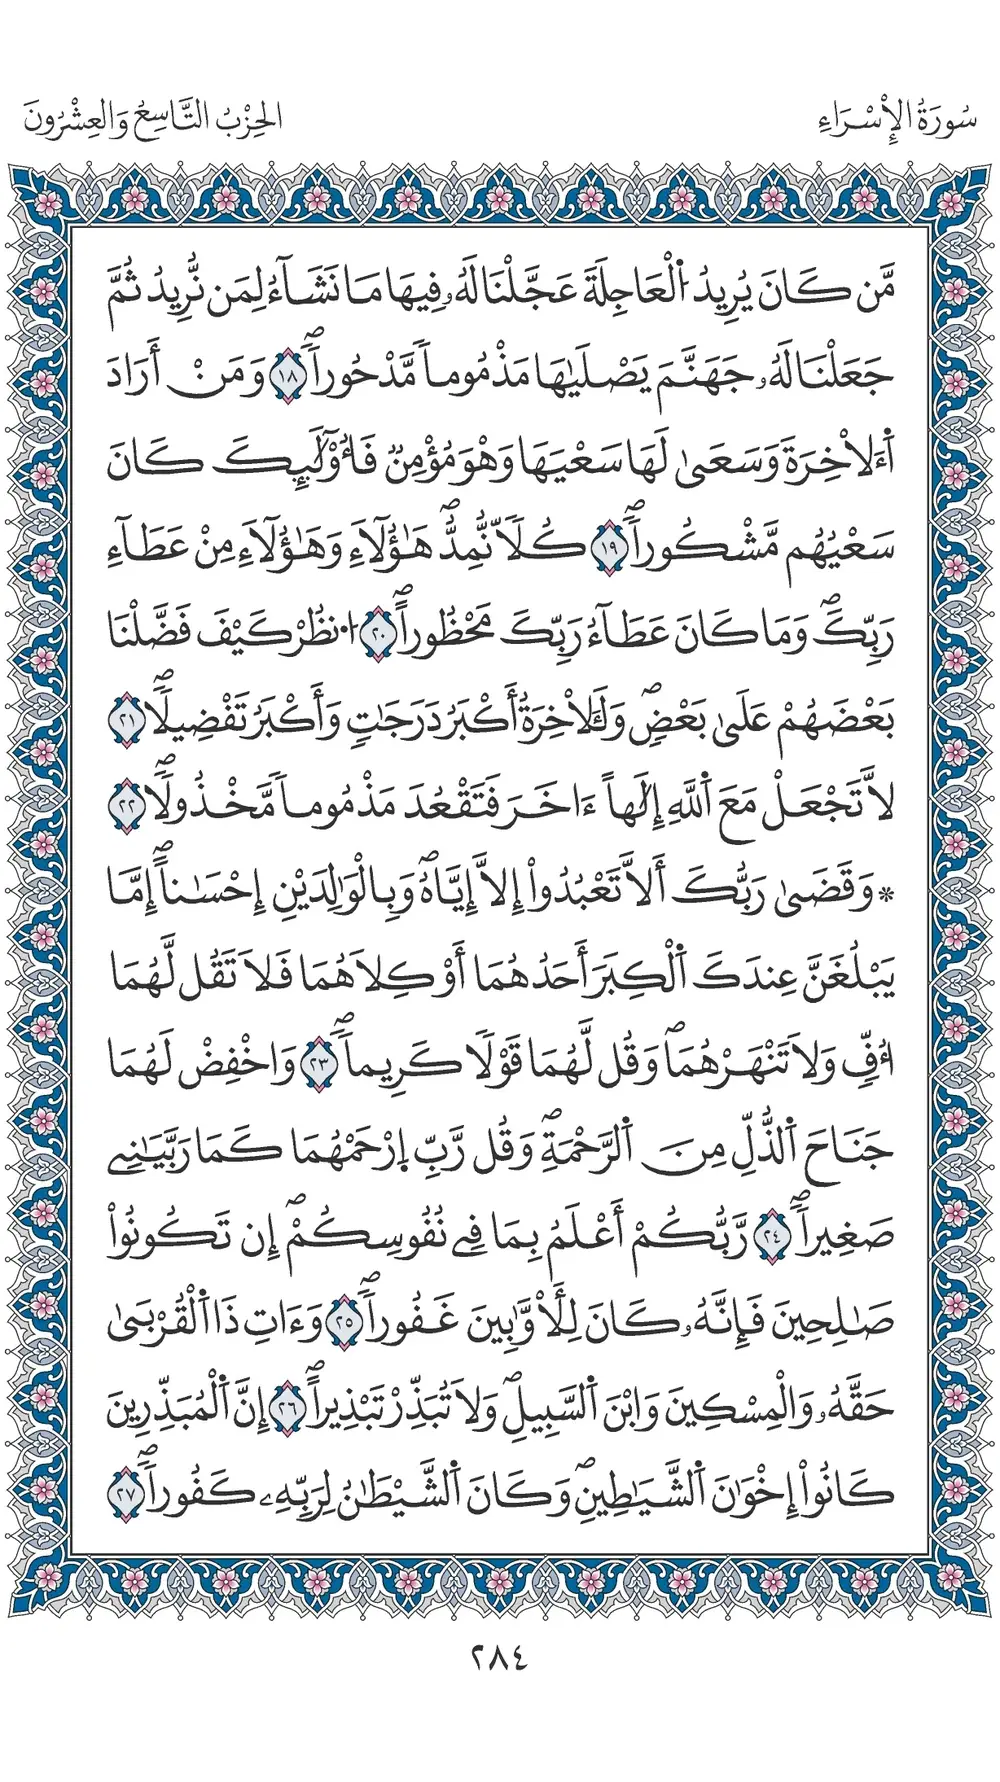 سُورَةُ الْإِسْرَاءِ
الحِزْبُ التَّاسِعُ وَالعِشْرُونَ
مَّن كَانَ يُرِيدُ اُ۬لْعَاجِلَةَ عَجَّلْنَا لَهُۥ فِيهَا مَا نَشَآءُ لِمَن نُّرِيدُ ثُمَّ
جَعَلْنَا لَهُۥ جَهَنَّمَ يَصْلَيٰهَا مَذْمُوماٗ مَّدْحُوراٗۖ ١٨ وَمَنْ أَرَادَ
اَ۬لَاخِرَةَ وَسَعَىٰ لَهَا سَعْيَهَا وَهْوَ مُؤْمِنٞ فَأُوْلَٰٓئِكَ كَانَ
سَعْيُهُم مَّشْكُوراٗۖ ١٩ كُلّاٗ نُّمِدُّۖ هَٰٓؤُلَآءِ وَهَٰٓؤُلَآءِ مِنْ عَطَآءِ
رَبِّكَۖ وَمَا كَانَ عَطَآءُ رَبِّكَ مَحْظُوراًۖ ٢٠ اُ۟نظُرْ كَيْفَ فَضَّلْنَا
بَعْضَهُمْ عَلَىٰ بَعْضٖۖ وَلَلَاخِرَةُ أَكْبَرُ دَرَجَٰتٖ وَأَكْبَرُ تَفْضِيلاٗۖ ٢١
لَّا تَجْعَلْ مَعَ اَ۬للَّهِ إِلَٰهاً ءَاخَرَ فَتَقْعُدَ مَذْمُوماٗ مَّخْذُولاٗۖ ٢٢
۞وَقَضَىٰ رَبُّكَ أَلَّا تَعْبُدُوٓاْ إِلَّآ إِيَّاهُۖ وَبِالْوَٰلِدَيْنِ إِحْسَٰناًۖ إِمَّا
يَبْلُغَنَّ عِندَكَ اَ۬لْكِبَرَ أَحَدُهُمَا أَوْ كِلَاهُمَا فَلَا تَقُل لَّهُمَا
أُفِّ وَلَا تَنْهَرْهُمَاۖ وَقُل لَّهُمَا قَوْلاٗ كَرِيماٗۖ ٢٣ وَاخْفِضْ لَهُمَا
جَنَاحَ اَ۬لذُّلِّ مِنَ اَ۬لرَّحْمَةِۖ وَقُل رَّبِّ اِ۪رْحَمْهُمَا كَمَا رَبَّيَٰنِے
صَغِيراٗۖ ٢٤ رَّبُّكُمْ أَعْلَمُ بِمَا فِے نُفُوسِكُمْۖ إِن تَكُونُواْ
صَٰلِحِينَ فَإِنَّهُۥ كَانَ لِلْأَوَّٰبِينَ غَفُوراٗۖ ٢٥ وَءَاتِ ذَا اَ۬لْقُرْبَىٰ
حَقَّهُۥ وَالْمِسْكِينَ وَابْنَ اَ۬لسَّبِيلِۖ وَلَا تُبَذِّرْ تَبْذِيراًۖ ٢٦ إِنَّ اَ۬لْمُبَذِّرِينَ
كَانُواْ إِخْوَٰنَ اَ۬لشَّيَٰطِينِۖ وَكَانَ اَ۬لشَّيْطَٰنُ لِرَبِّهِۦ كَفُوراٗۖ ٢٧
٢٨٤